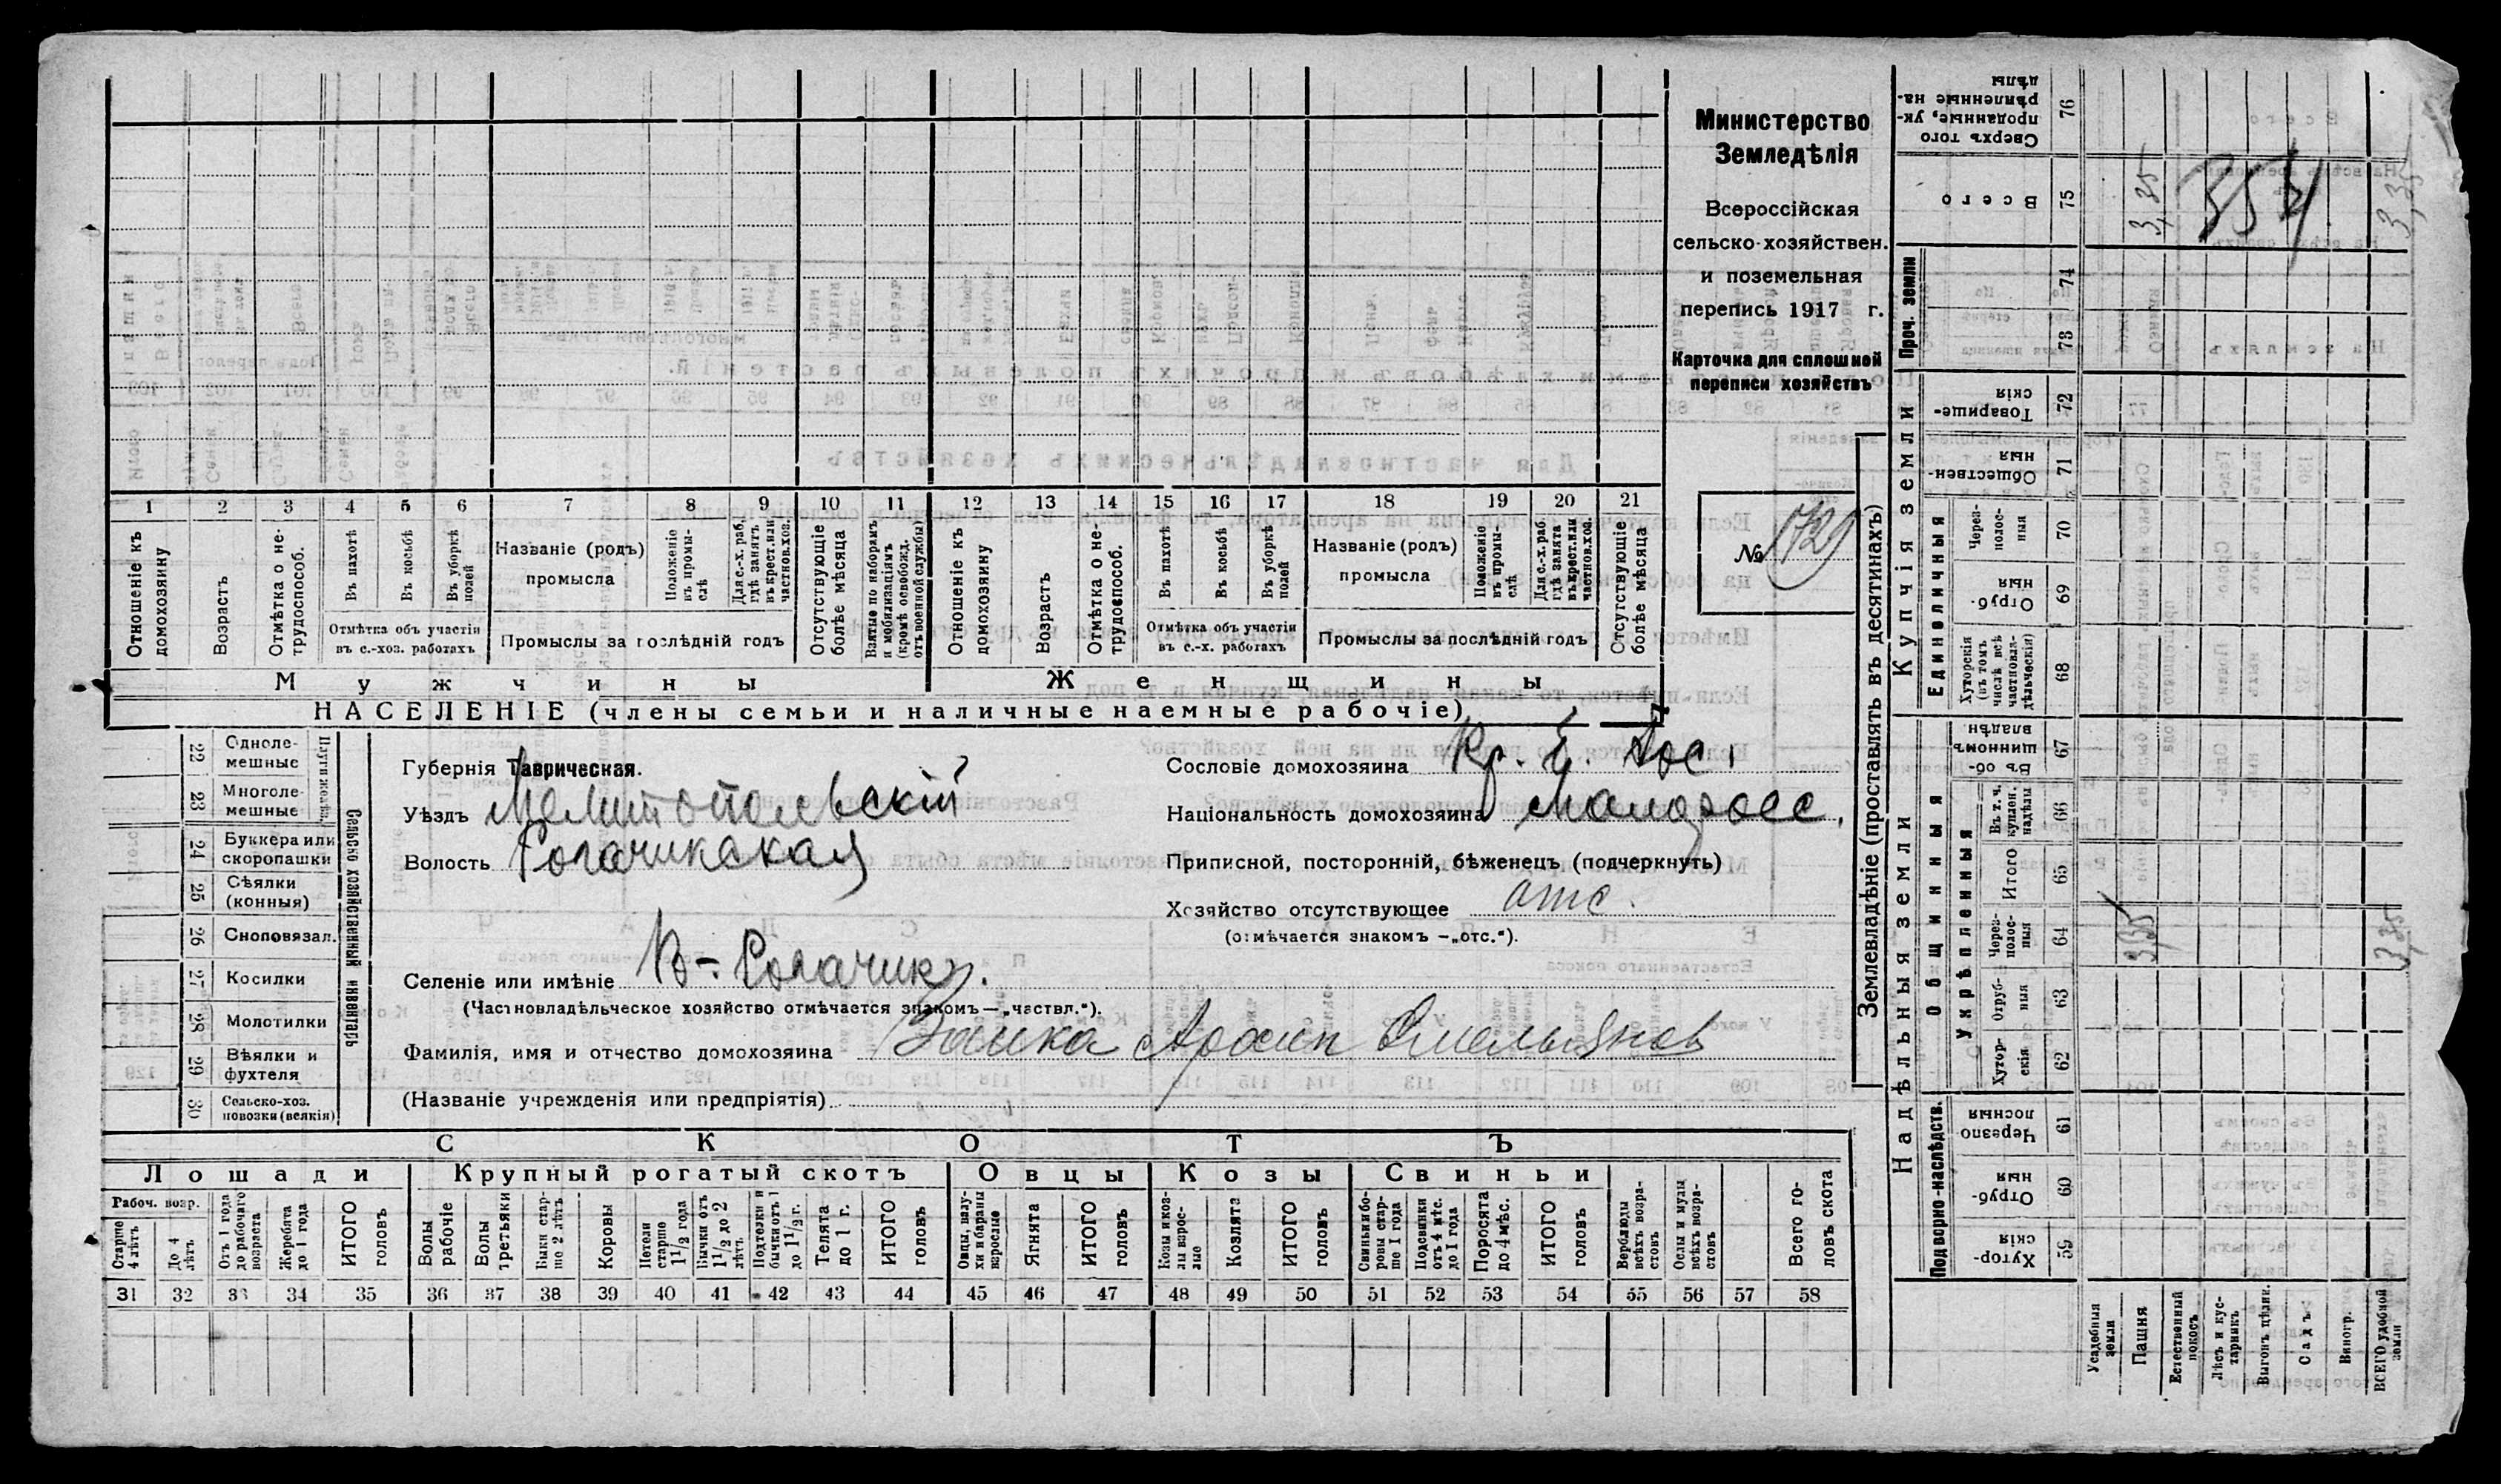 Министерство
Земледѣлія
Всероссійская
сельско-хозяйствен.
и поземельная
перепись 1917 г.
Карточка для сплошной
переписи хозяйствъ
№ 1729
1 2 3 4 5 6 7 8 9 10 11 12 13 14 15 16 17 18 19 20 21
Отношеніе къ домохозяину
Возрастъ
Отмѣтка о не-трудоспособ.
Въ пахотѣ
Въ косьбѣ
Въ уборкѣ полей
Отмѣтка объ участіи
въ с.-хоз. работахъ
Названіе (родъ)
промысла
Положеніе въ промы-слѣ
Для с.-х. раб. гдѣ занятъ въ крест. или частнов. хоз.
Промыслы за послѣдній годъ
Отсутствующіе болѣе мѣсяца
Взятые по наборамъ и мобилизаціямъ (кромѣ освобожд. отъ военной службы)
Отношеніе къ домохозяину
Возрастъ
Отмѣтка о не-трудоспособ.
Въ пахотѣ
Въ косьбѣ
Въ уборкѣ полей
Отмѣтка объ участіи
въ с.-х. работахъ
Названіе (родъ)
промысла
Положеніе въ промы-слѣ
Для с.-х. раб. гдѣ занята въ крест. или частнов. хоз.
Промыслы за послѣдній годъ
Отсутствующіе болѣе мѣсяца
Мужчины
Женщины
НАСЕЛЕНІЕ (члены семьи и наличные наемные рабочіе)
Сельско хозяйственный инвентарь
22 Одноле-мешные
23 Многоле-мешные
24 Буккера или скоропашки
25 Сѣялки (конныя)
26 Сноповязал.
27 Косилки
28 Молотилки
29 Вѣялки и фухтеля
30 Сельско-хоз. повозки (всякія)
Губернія Таврическая.
Уѣздъ Мелитопольскій
Волость Рогачикская
Селеніе или имѣніе В-Рогачикъ.
(Частновладѣльческое хозяйство отмѣчается знакомъ—„частвл.“).
Фамилія, имя и отчество домохозяина Заика Архип Омельянов
(Названіе учрежденія или предпріятія)
Сословіе домохозяина Кр.
Національность домохозяина Малоросс.
Приписной, посторонній, бѣженецъ (подчеркнуть)
Хозяйство отсутствующее отс.
(отмѣчается знакомъ —„отс.“).
СКОТЪ
Лошади
Крупный рогатый скотъ
Овцы
Козы
Свиньи
Рабоч. возр.
Старше 4 лѣтъ
До 4 лѣтъ
Отъ 1 года до рабочаго возраста
Жеребята до 1 года
ИТОГО головъ
Волы рабочіе
Волы третьяки
Быки стар-ше 2 лѣтъ
Коровы
Нетели старше 1 1/2 года
Бычки отъ 1 1/2 до 2 лѣтъ
Подтелки и бычки отъ 1 до 1 1/2 г.
Телята до 1 г.
ИТОГО головъ
Овцы, валу-хи и бараны взрослые
Ягнята
ИТОГО головъ
Козы и коз-лы взрос-лые
Козлята
ИТОГО головъ
Свиньи и бо-ровы стар-ше 1 года
Подсвинки отъ 4 мѣс. до 1 года
Поросята до 4 мѣс.
ИТОГО головъ
Верблюды всѣхъ возра-стовъ
Ослы и мулы всѣхъ возра-стовъ
Всего го-ловъ скота
31 32 33 34 35 36 37 38 39 40 41 42 43 44 45 46 47 48 49 50 51 52 53 54 55 56 57 58
Землевладѣніе (проставлять въ десятинахъ)
Надѣльныя земли
Купчія земли
Проч. земли
Подворно-наслѣдств.
Общинныя
Укрѣпленныя
Единоличныя
Сверхъ того проданные, ук-рѣпленные на-дѣлы 76
Всего 75 3,35 3,35
354
74
73
Товарище-скія 72
Обществен-ныя 71
Через-полос-ныя 70
Отруб-ныя 69
Хуторскія (въ томъ числѣ всѣ частновла-дѣльческія) 68
Въ об-щинномъ владѣн. 67
Въ т. ч. куплен. надѣлы 66
Итого 65
Через-полос-ныя 64 3,35 3,35
Отруб-ныя 63
Хутор-скія 62
Черезпо-лосныя 61
Отруб-ныя 60
Хутор-скія 59
Усадебныя земли
Пашня
Естественный покосъ
Лѣсъ и кус-тарникъ
Выгонъ цѣлик.
Садъ
Виногр.
ВСЕГО удобной земли